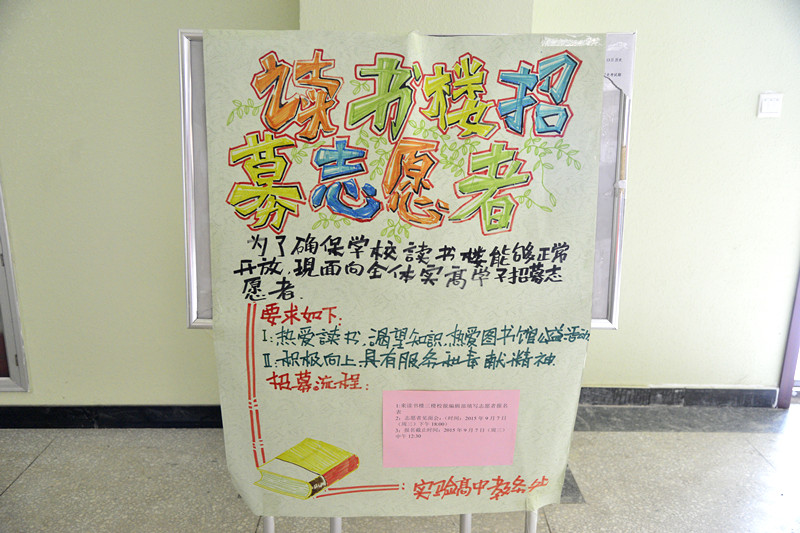 读书楼招
募志愿者
为了确保学校读书楼能够正常
开放,现面向全体实高学子招募志
愿者.
要求如下:
I:热爱读书,渴望知识,热爱图书馆公益活动
II:积极向上具有服务和奉献精神
招募流程:
1:来读书楼三楼校报编辑部填写志愿者报名
表
2:志愿者见面会:(时间:2015年9月7日
(周三)下午18:00)
3:报名截止时间:2015年9月7日(周三)
中午12:30
实验高中教务处